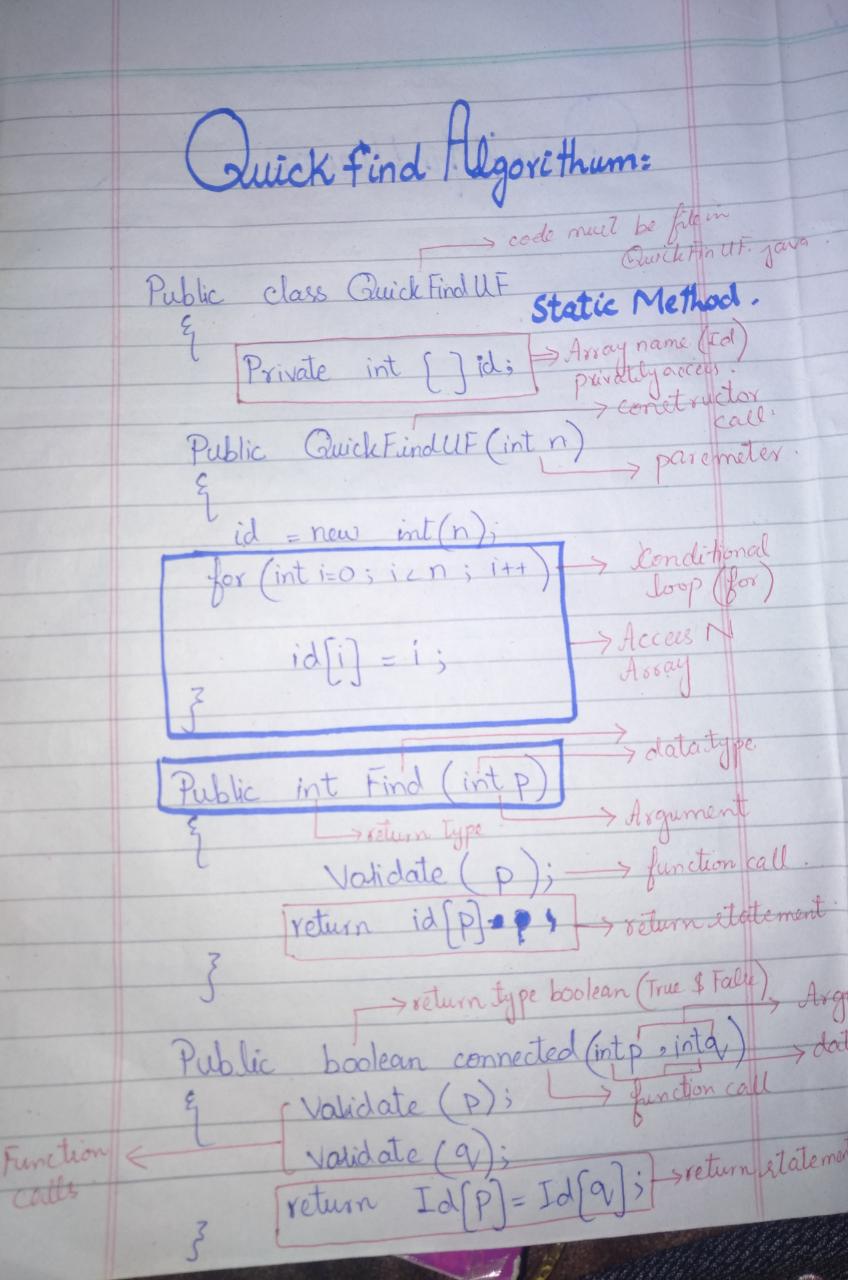 Quick find Algorithum:
code must be file in
QuickFin UF. java.
Public class QuickFindUF
Static Method.
{
Private int [ ] id;
Array name (Id)
constructor
call.
Public QuickFindUF (int n)
paremeter.
{
id = new int(n);
for (int i=0; i<n; i++)
Conditional
loop (for)
id[i] = i;
Access N
Array
}
data type
Public int Find (int p)
Argument
return Type
{
Validate (p);
function call.
return id[p]
return statement
}
return type boolean (True $ False)
Arg
Public boolean connected (int p, int q)
dat
function call
{
Validate (p);
Function
calls
Validate (q);
return Id[p] = Id[q];
return stateme
}